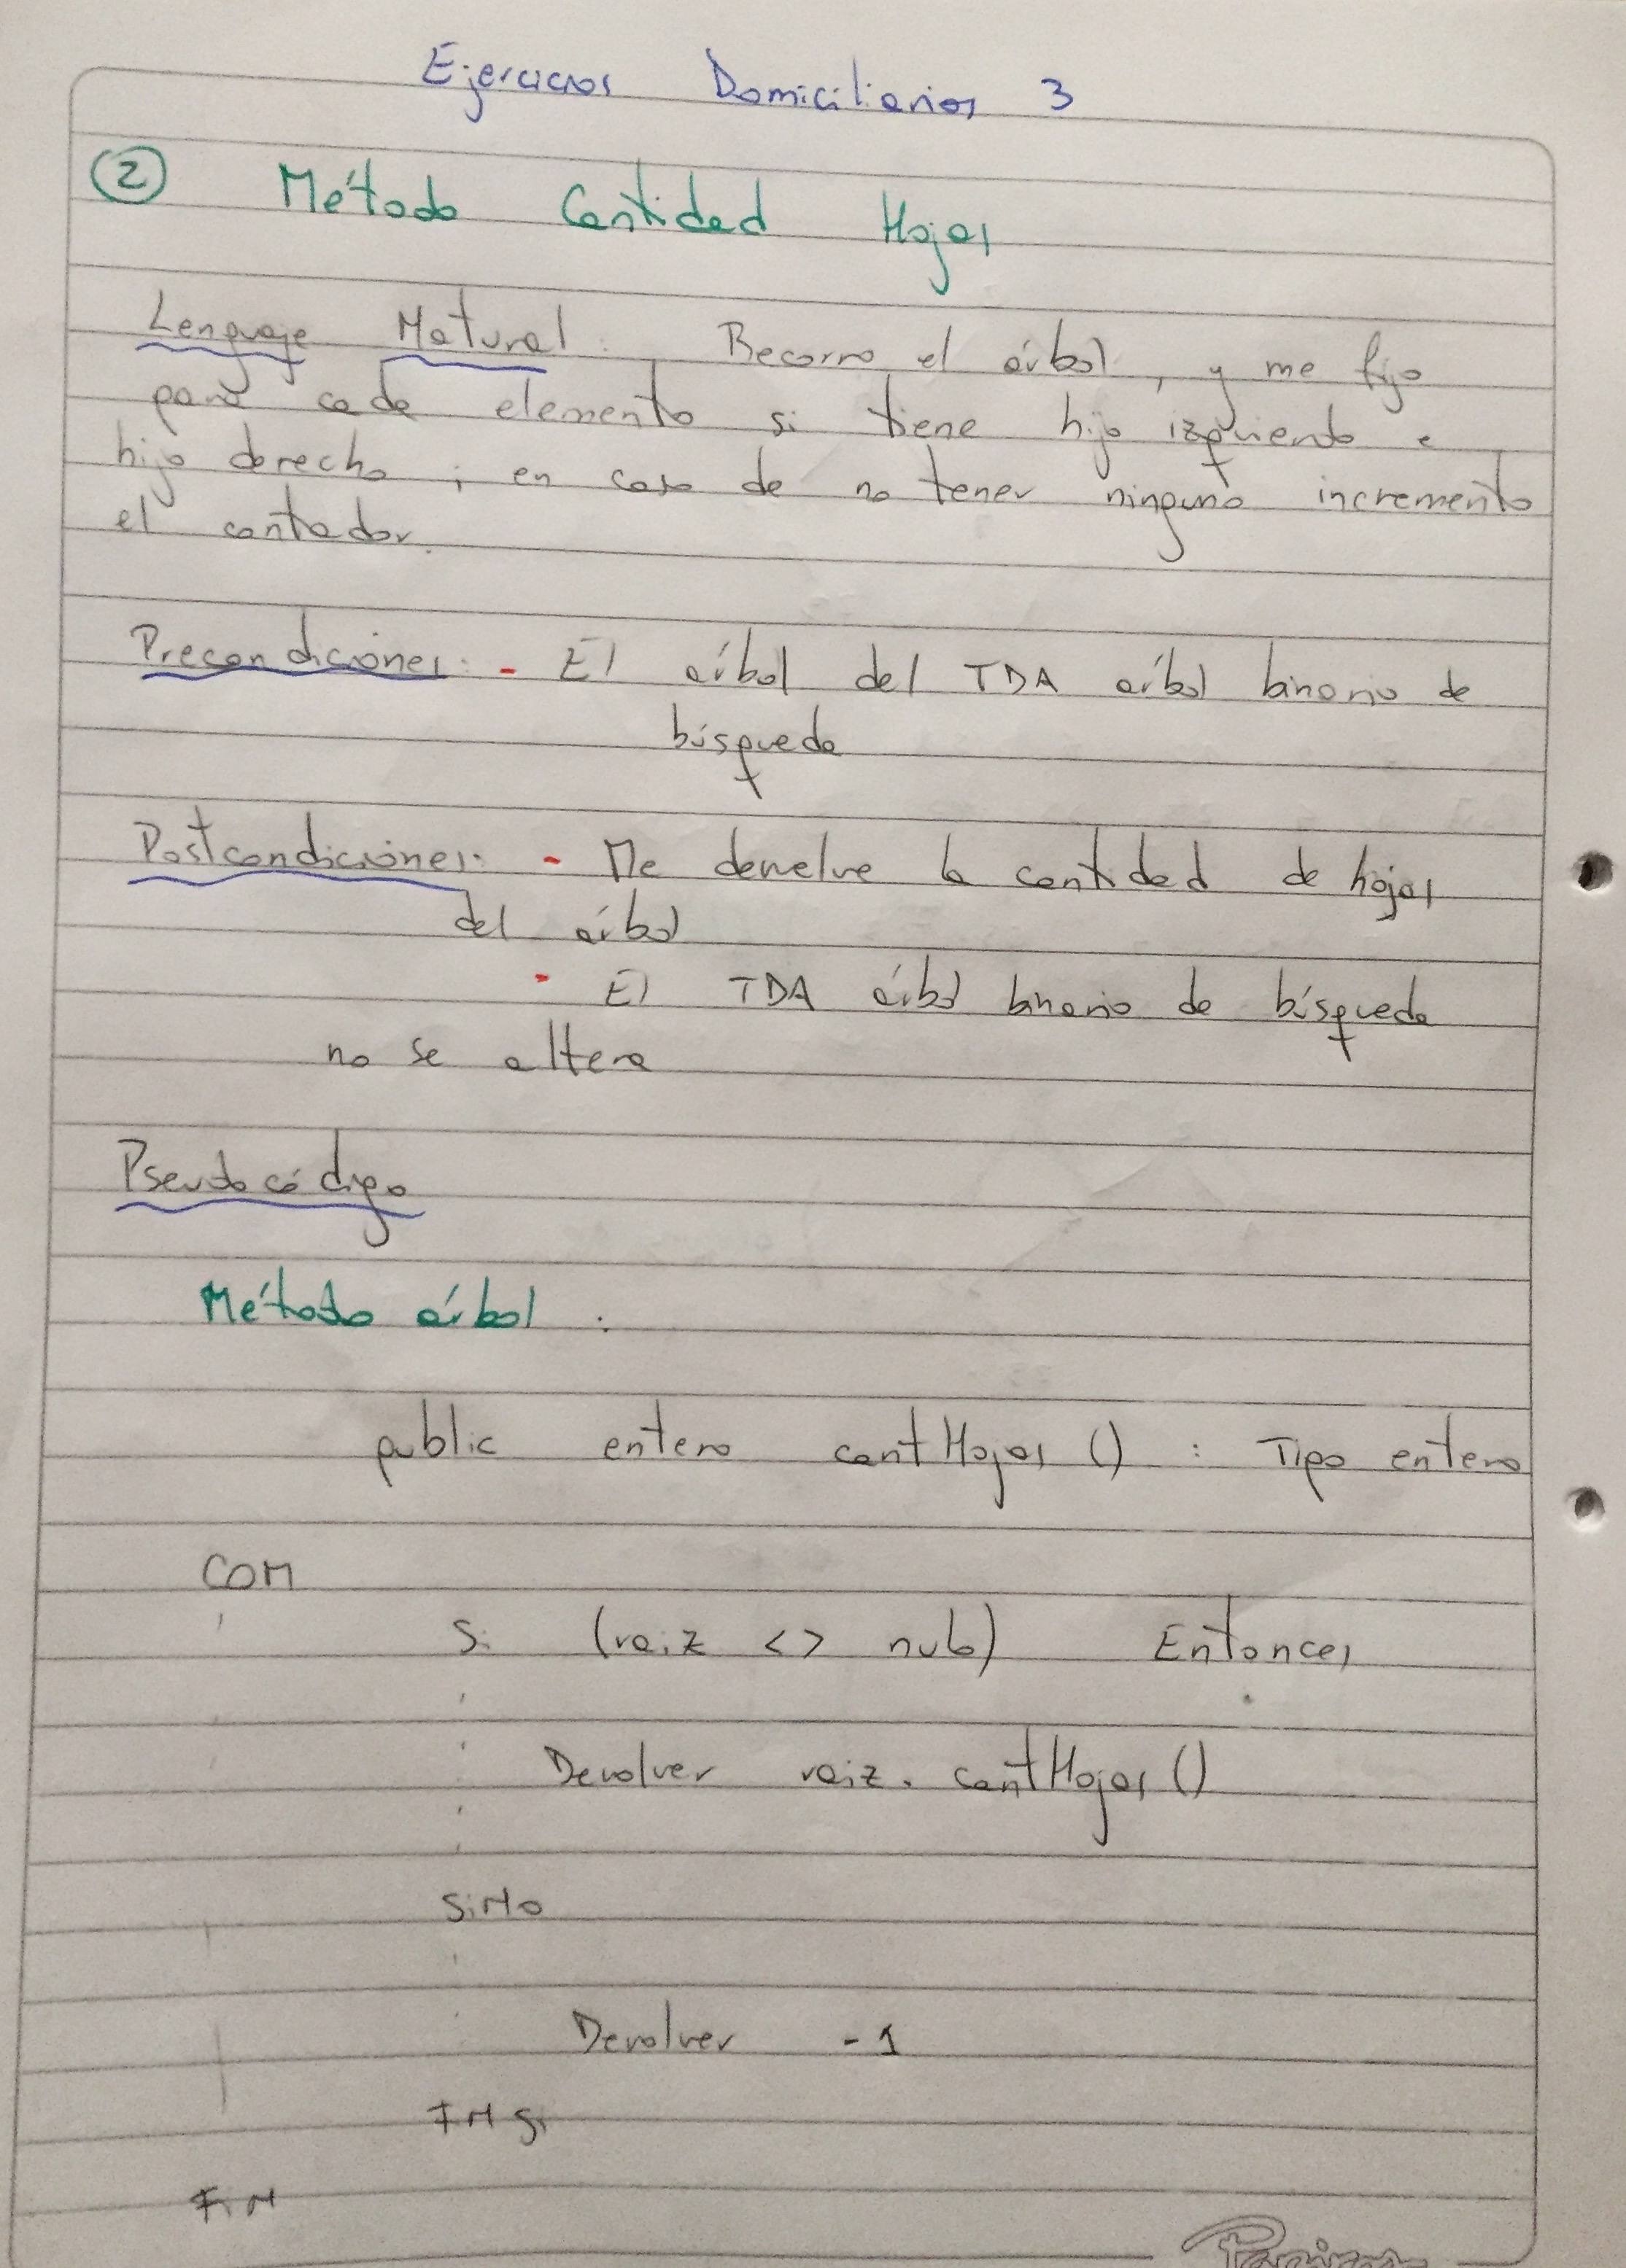 Ejercicios Domiciliarios 3
② Método Cantidad Hojas
Lenguaje Natural: Recorro el árbol, y me fijo
para cada elemento si tiene hijo izquierdo e
hijo derecho; en caso de no tener ninguno incremento
el contador.
Precondiciones: - El árbol del TDA árbol binario de
búsqueda
Postcondiciones: - Me devuelve la cantidad de hojas
del árbol
- El TDA árbol binario de búsqueda
no se altera
Pseudocódigo
Método árbol :
public entero cantHojas () : Tipo entero
COM
Si (raiz <> nulo) Entonces
Devolver raiz.cantHojas ()
SiNo
Devolver -1
FiN Si
FiN